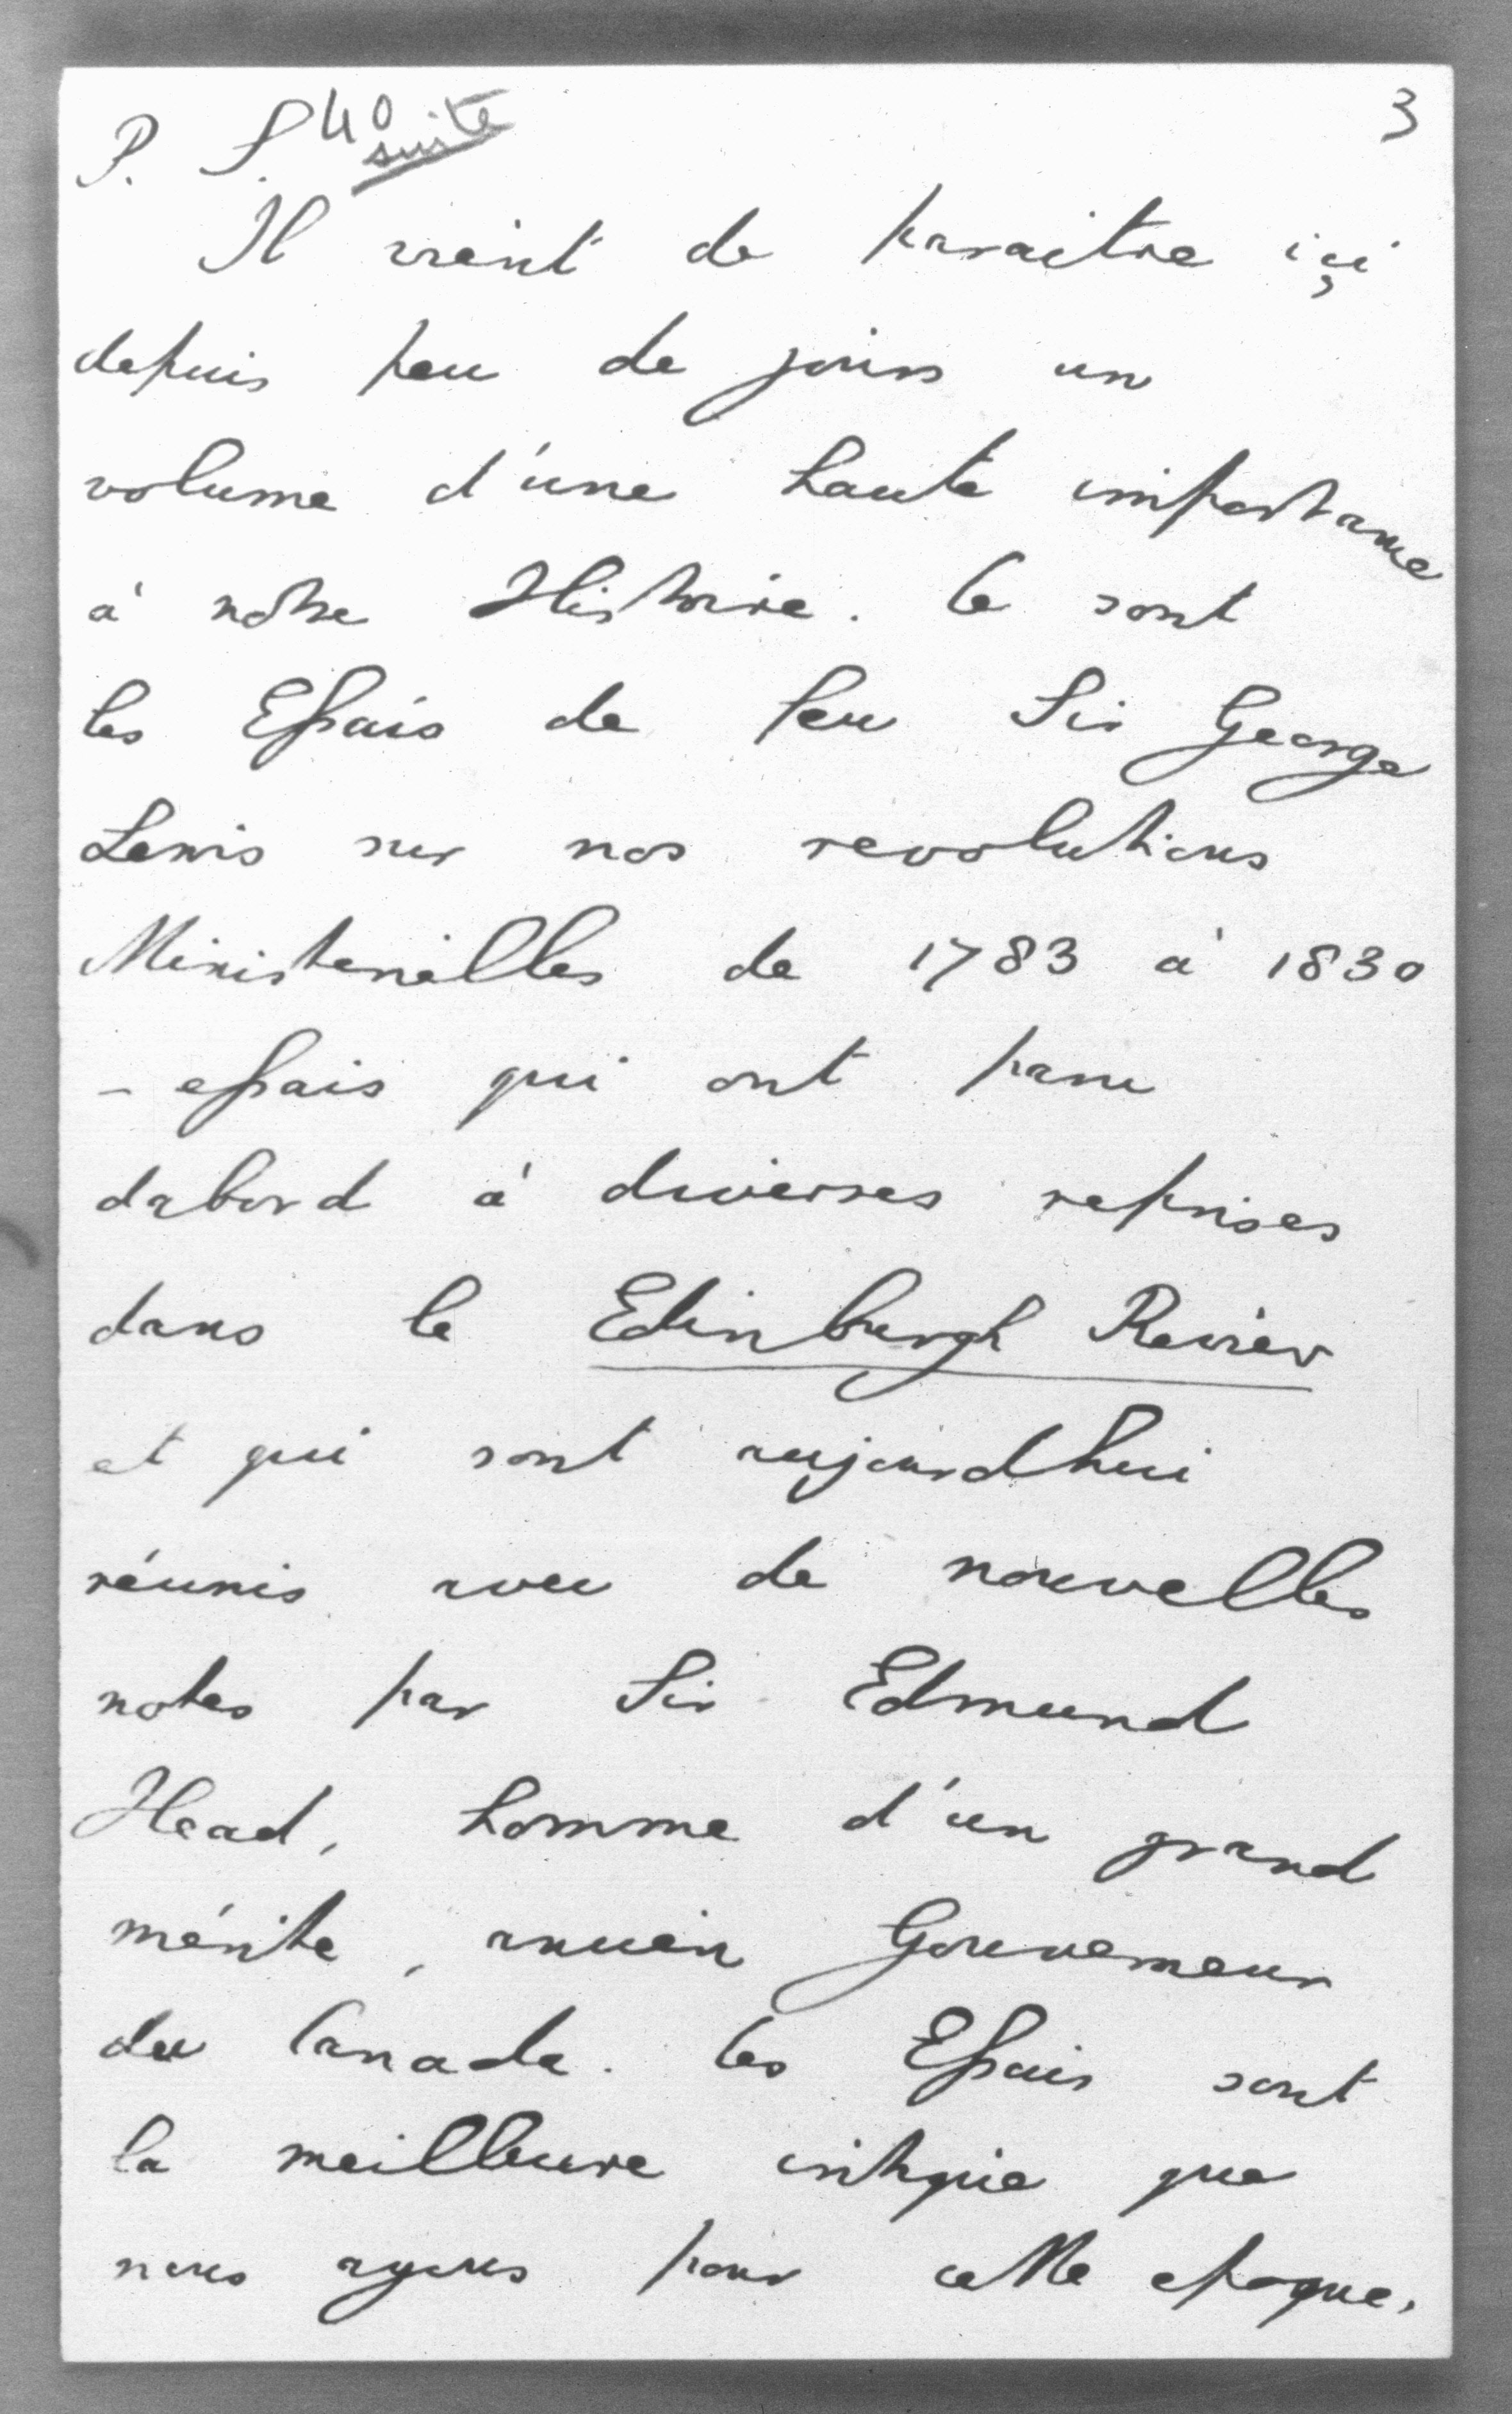 P. S. 40 suite 3
Il vient de paraitre içi
depuis peu de jours un
volume d'une haute importance
à nôtre Histoire. Ce sont
les Essais de feu Sir George
Lewis sur nos revolutions
Ministerielles de 1783 à 1830
– essais qui ont paru
dabord à diverses reprises
dans le Edinburgh Review
et qui sont aujourdhui
réunis avec de nouvelles
notes par Sir Edmund
Head, homme d'un grand
mérite, ancien Gouverneur
du Canada. Ces Essais sont
la meilleure critique que
nous ayons pour cette epoque.